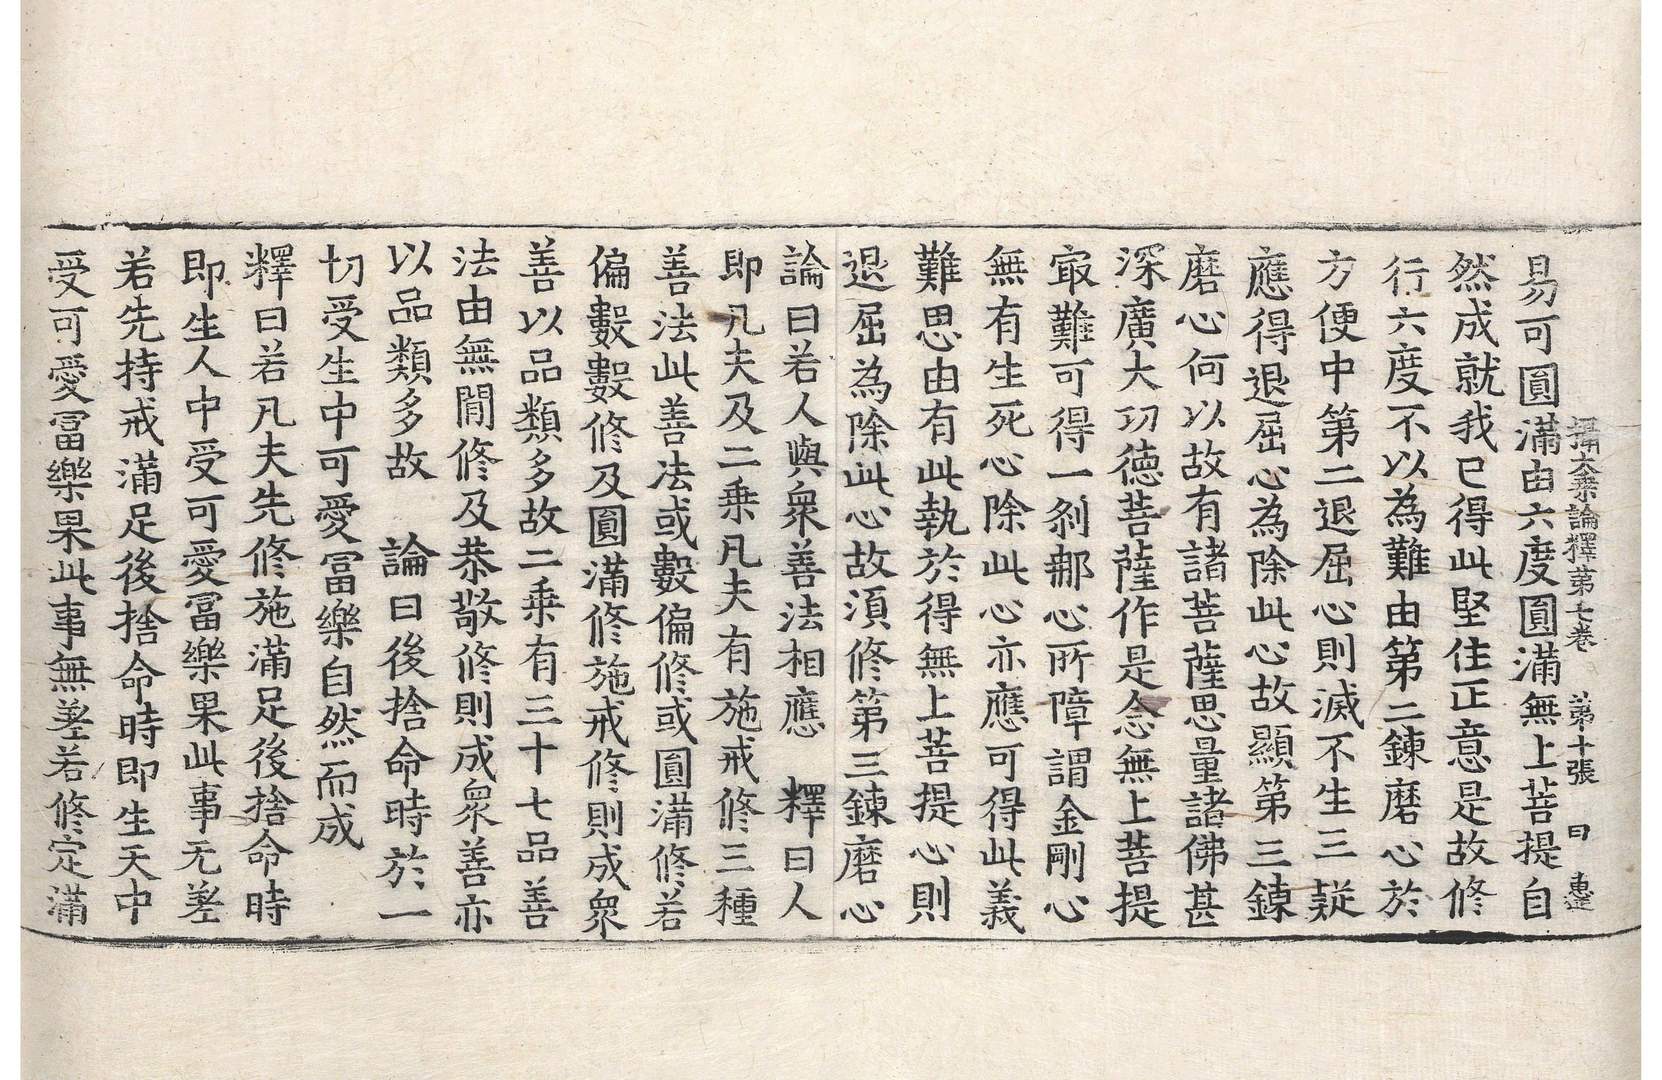 攝大乘論釋第七卷　第十張　曰
易可圓滿由六度圓滿無上菩提自
然成就我已得此堅住正意是故修
行六度不以為難由第二鍊磨心於
方便中第二退屈心則滅不生三疑
應得退屈心為除此心故顯第三鍊
磨心何以故有諸菩薩思量諸佛甚
深廣大功德菩薩作是念無上菩提
㝡難可得一刹那心所障謂金剛心
無有生死心除此心亦應可得此義
難思由有此執於得無上菩提心則
退屈為除此心故須修第三鍊磨心
論曰若人與衆善法相應　釋曰人
即凡夫及二乘凡夫有施戒修三種
善法此善法或數偏修或圓滿修若
偏數數修及圓滿修施戒修則成衆
善以品類多故二乘有三十七品善
法由無間修及恭敬修則成衆善亦
以品類多故　論曰後捨命時於一
切受生中可愛冨樂自然而成
釋曰若凡夫先修施滿足後捨命時
即生人中受可愛冨樂果此事无差
若先持戒滿足後捨命時即生天中
受可愛冨樂果此事無差若修定滿